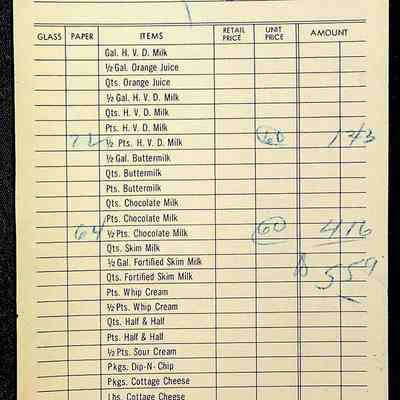 GLASS PAPER ITEMS RETAIL PRICE UNIT PRICE AMOUNT
Gal. H. V. D. Milk
½ Gal. Orange Juice
Qts. Orange Juice
½ Gal. H. V. D. Milk
Qts. H. V. D. Milk
Pts. H. V. D. Milk
72 ½ Pts. H. V. D. Milk 60 143
½ Gal. Buttermilk
Qts. Buttermilk
Pts. Buttermilk
Qts. Chocolate Milk
Pts. Chocolate Milk
64 ½ Pts. Chocolate Milk 60 416
Qts. Skim Milk
½ Gal. Fortified Skim Milk
Qts. Fortified Skim Milk 559
Pts. Whip Cream
½ Pts. Whip Cream
Qts. Half & Half
Pts. Half & Half
½ Pts. Sour Cream
Pkgs. Dip-N-Chip
Pkgs. Cottage Cheese
Lbs. Cottage Cheese